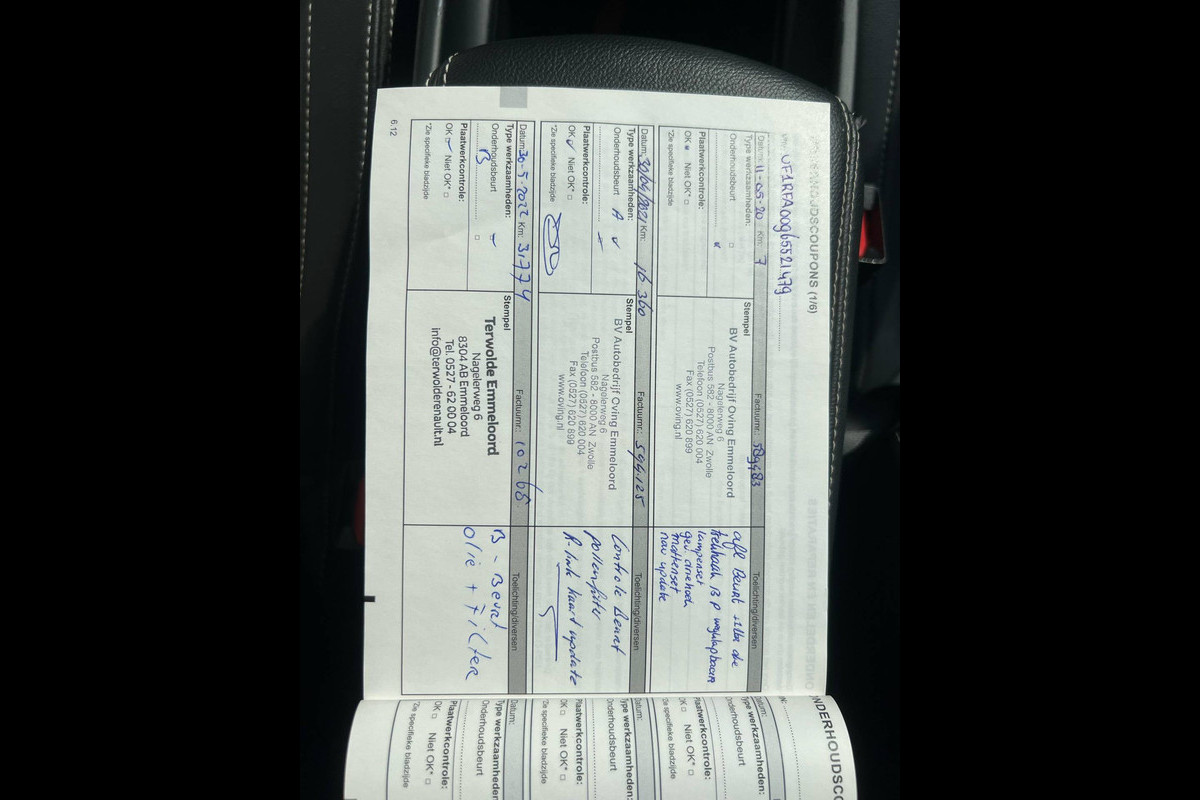 ONDERHOUDSCOUPONS (1/6)
VIN: VF1RFA00965521479
Datum: 11-05-20 Km: 7 Factuurnr.: 589483 Toelichting/diversen
Type werkzaamheden:
Onderhoudsbeurt
Plaatwerkcontrole:
OK Niet OK*
*Zie specifieke bladzijde
Stempel
BV Autobedrijf Oving Emmeloord
Nagelerweg 6
Postbus 582 - 8000 AN Zwolle
Telefoon (0527) 620 004
Fax (0527) 620 899
www.oving.nl
afl Beurt
trekhaak 13 P wegklapbaar
lampenset
gev driehoek
mattenset
nav update
Datum: 30/04/2021 Km: 16 360 Factuurnr.: 599.125 Toelichting/diversen
Type werkzaamheden:
Onderhoudsbeurt A
Plaatwerkcontrole:
OK Niet OK*
*Zie specifieke bladzijde
Stempel
BV Autobedrijf Oving Emmeloord
Nagelerweg 6
Postbus 582 - 8000 AN Zwolle
Telefoon (0527) 620 004
Fax (0527) 620 899
www.oving.nl
Controle Beurt
pollenfilter
R-link kaart update
Datum: 30-5-2022 Km: 31774 Factuurnr.: 10268 Toelichting/diversen
Type werkzaamheden:
Onderhoudsbeurt
B
Plaatwerkcontrole:
OK Niet OK*
*Zie specifieke bladzijde
Stempel
Terwolde Emmeloord
Nagelerweg 6
8304 AB Emmeloord
Tel. 0527 - 62 00 04
info@terwolderenault.nl
B - Beurt
olie + Filter
6.12
ONDERHOUDSCO
Datum:
Type werkzaamheden:
Onderhoudsbeurt
Plaatwerkcontrole:
OK Niet OK*
*Zie specifieke bladzijde
Datum:
Type werkzaamheden:
Onderhoudsbeurt
Plaatwerkcontrole:
OK Niet OK*
*Zie specifieke bladzijde
Datum:
Type werkzaamheden:
Onderhoudsbeurt
Plaatwerkcontrole:
OK Niet OK*
*Zie specifieke bladzijde